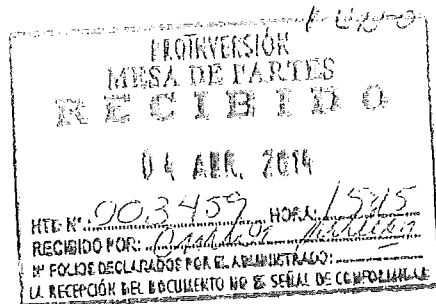 PROINVERSIÓN
MESA DE PARTES
RECIBIDO
04 ABR. 2014
HTE- N°: 003459 HORA: 1545
RECIBIDO POR:
N° FOLIOS DECLARADOS POR EL ADMINISTRADO:
LA RECEPCIÓN DEL DOCUMENTO NO ES SEÑAL DE CONFORMIDAD